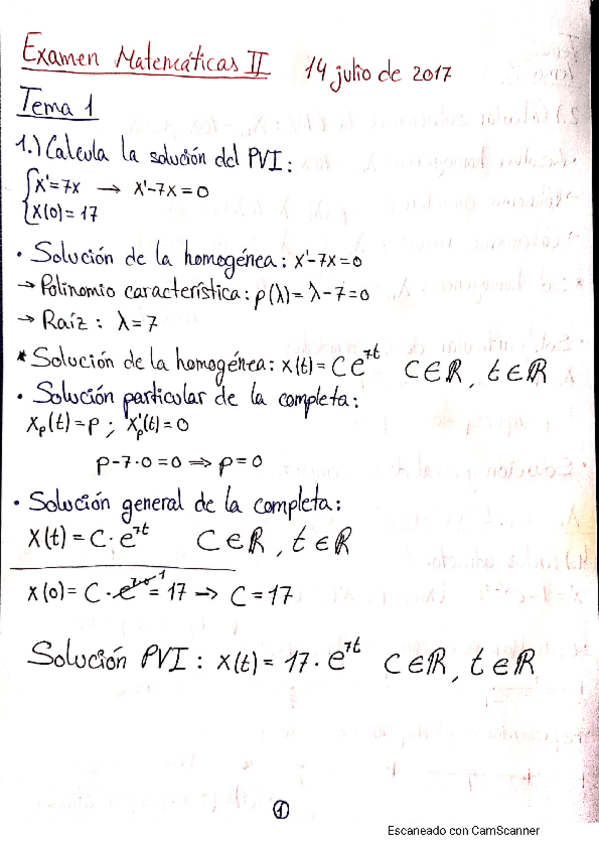 Examen Matemáticas II 14 julio de 2017
Tema 1
1.) Calcula la solución del PVI:
{x'=7x → x'-7x=0
{x(0)=17
• Solución de la homogénea: x'-7x=0
→ Polinomio característica: p(λ)=λ-7=0
→ Raíz: λ=7
* Solución de la homogénea: x(t)=Ce^7t C∈R, t∈R
• Solución particular de la completa:
xp(t)=p; x'p(t)=0
p-7·0=0 ⇒ p=0
• Solución general de la completa:
x(t)=C·e^7t C∈R, t∈R
x(0)=C·e^7·0 1 = 17 → C=17
Solución PVI: x(t)=17·e^7t C∈R, t∈R
1
Escaneado con CamScanner